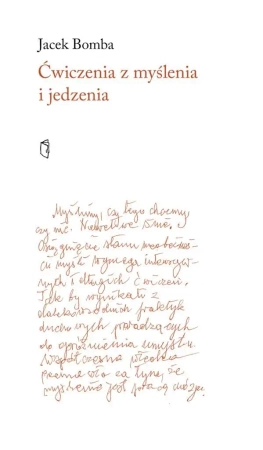 Jacek Bomba
Ćwiczenia z myślenia
i jedzenia
Myślimy, czy tego chcemy
czy nie. Nawet we śnie.
Osiągnięcie stanu nieobecno-
ści myśli wymaga intensyw-
nych i długich ćwiczeń.
Tak by wynikało z
praktyk
duchowych prowadzących
do opróżnienia umysłu.
Współczesna wiedza
myślenie jest pracą mózgu.